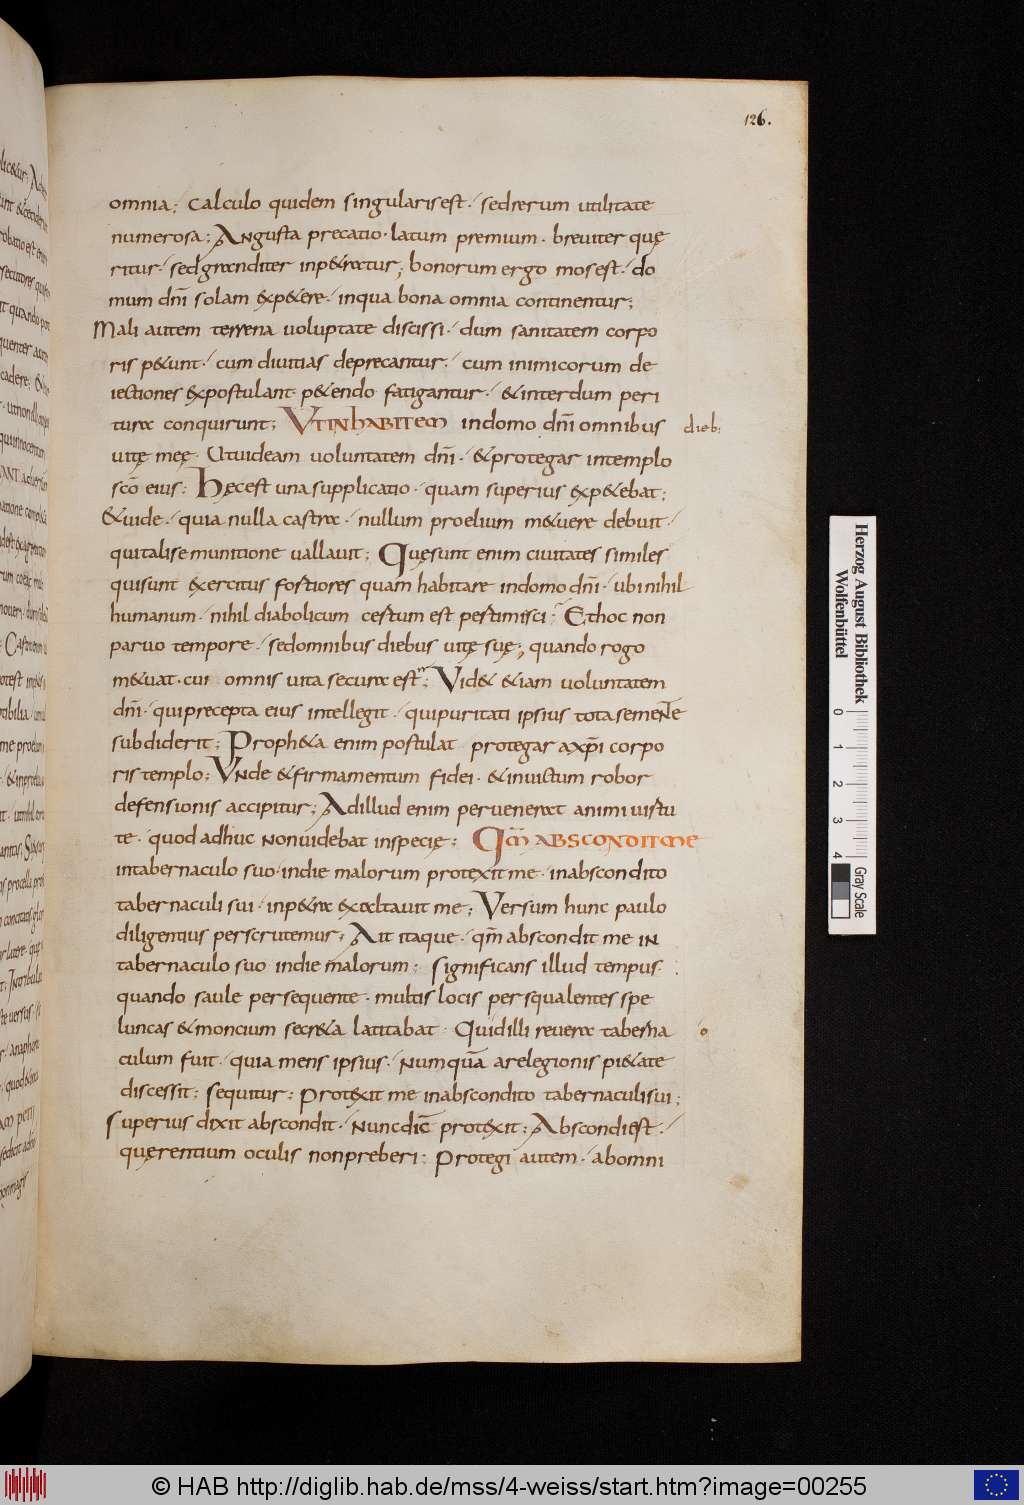 126.
omnia; Calculo quidem singularis est · sed rerum utilitate
numerosa; Angusta precatio · latum premium · breviter quę
ritur · sed granditer inpetratur; bonorum ergo mos est · do
mum dn̄i solam expetere · in qua bona omnia continentur;
Mali autem terrena voluptate discissi · dum sanitatem corpo
ris petunt · cum divitias deprecantur · cum inimicorum de
iectiones expostulant petendo fatigantur · & interdum peri
tura conquirunt; UT INHABITEM in domo dn̄i omnibus
dieb;
vitę meę · Ut videam voluntatem dn̄i · & protegar in templo
sc̄o eius; Hęc est una supplicatio · quam superius expetebat;
& vide · quia nulla castra · nullum proelium metuere debuit ·
qui tali se munitione vallavit; Quę sunt enim civitates similes
qui sunt exercitus fortiores quam habitare in domo dn̄i · ubi nihil
humanum · nihil diabolicum certum est pertimisci; Et hoc non
parvo tempore · sed omnibus diebus vitę suę; quando rogo
metuat · cui omnis vita secura est; Videt etiam voluntatem
dn̄i · qui precepta eius intellegit · qui puritati ipsius tota se mente
subdiderit; Propheta enim postulat protegar a xp̄i corpo
ris templo; Unde & firmamentum fidei · & invictum robor
defensionis accipitur; Ad illud enim pervenerat animi virtu
te · quod adhuc non videbat in specię; Qm̄ ABSCONDIT ME
in tabernaculo suo · in die malorum protexit me · in abscondito
tabernaculi sui · in petra exaltavit me; Versum hunc paulo
diligentius perscrutemur; Ait itaque · qm̄ abscondit me in
tabernaculo suo in die malorum; significans illud tempus ·
quando saule persequente · multis locis per squalentes spe
luncas & moncium secreta latitabat · Qui d illi revera taberna
culum fuit · quia mens ipsius · Numquā a relegionis pietate
discessit; sequitur; Protexit me in abscondito tabernaculi sui;
superius dixit abscondit · Nunc dic̄ protexit; Abscondi est ·
quęrentium oculis non preberi; Protegi autem · ab omni
Herzog August Bibliothek
Wolfenbüttel
0 1 2 3 4
Gray Scale
© HAB http://diglib.hab.de/mss/4-weiss/start.htm?image=00255